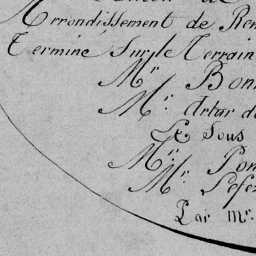 Arrondissement de Ren
Terminé Sur le Terrain
Mr. Bon
Mr. Artar de
Et Sous
Mr. Pon
Mr. Pefe
Par Mr.